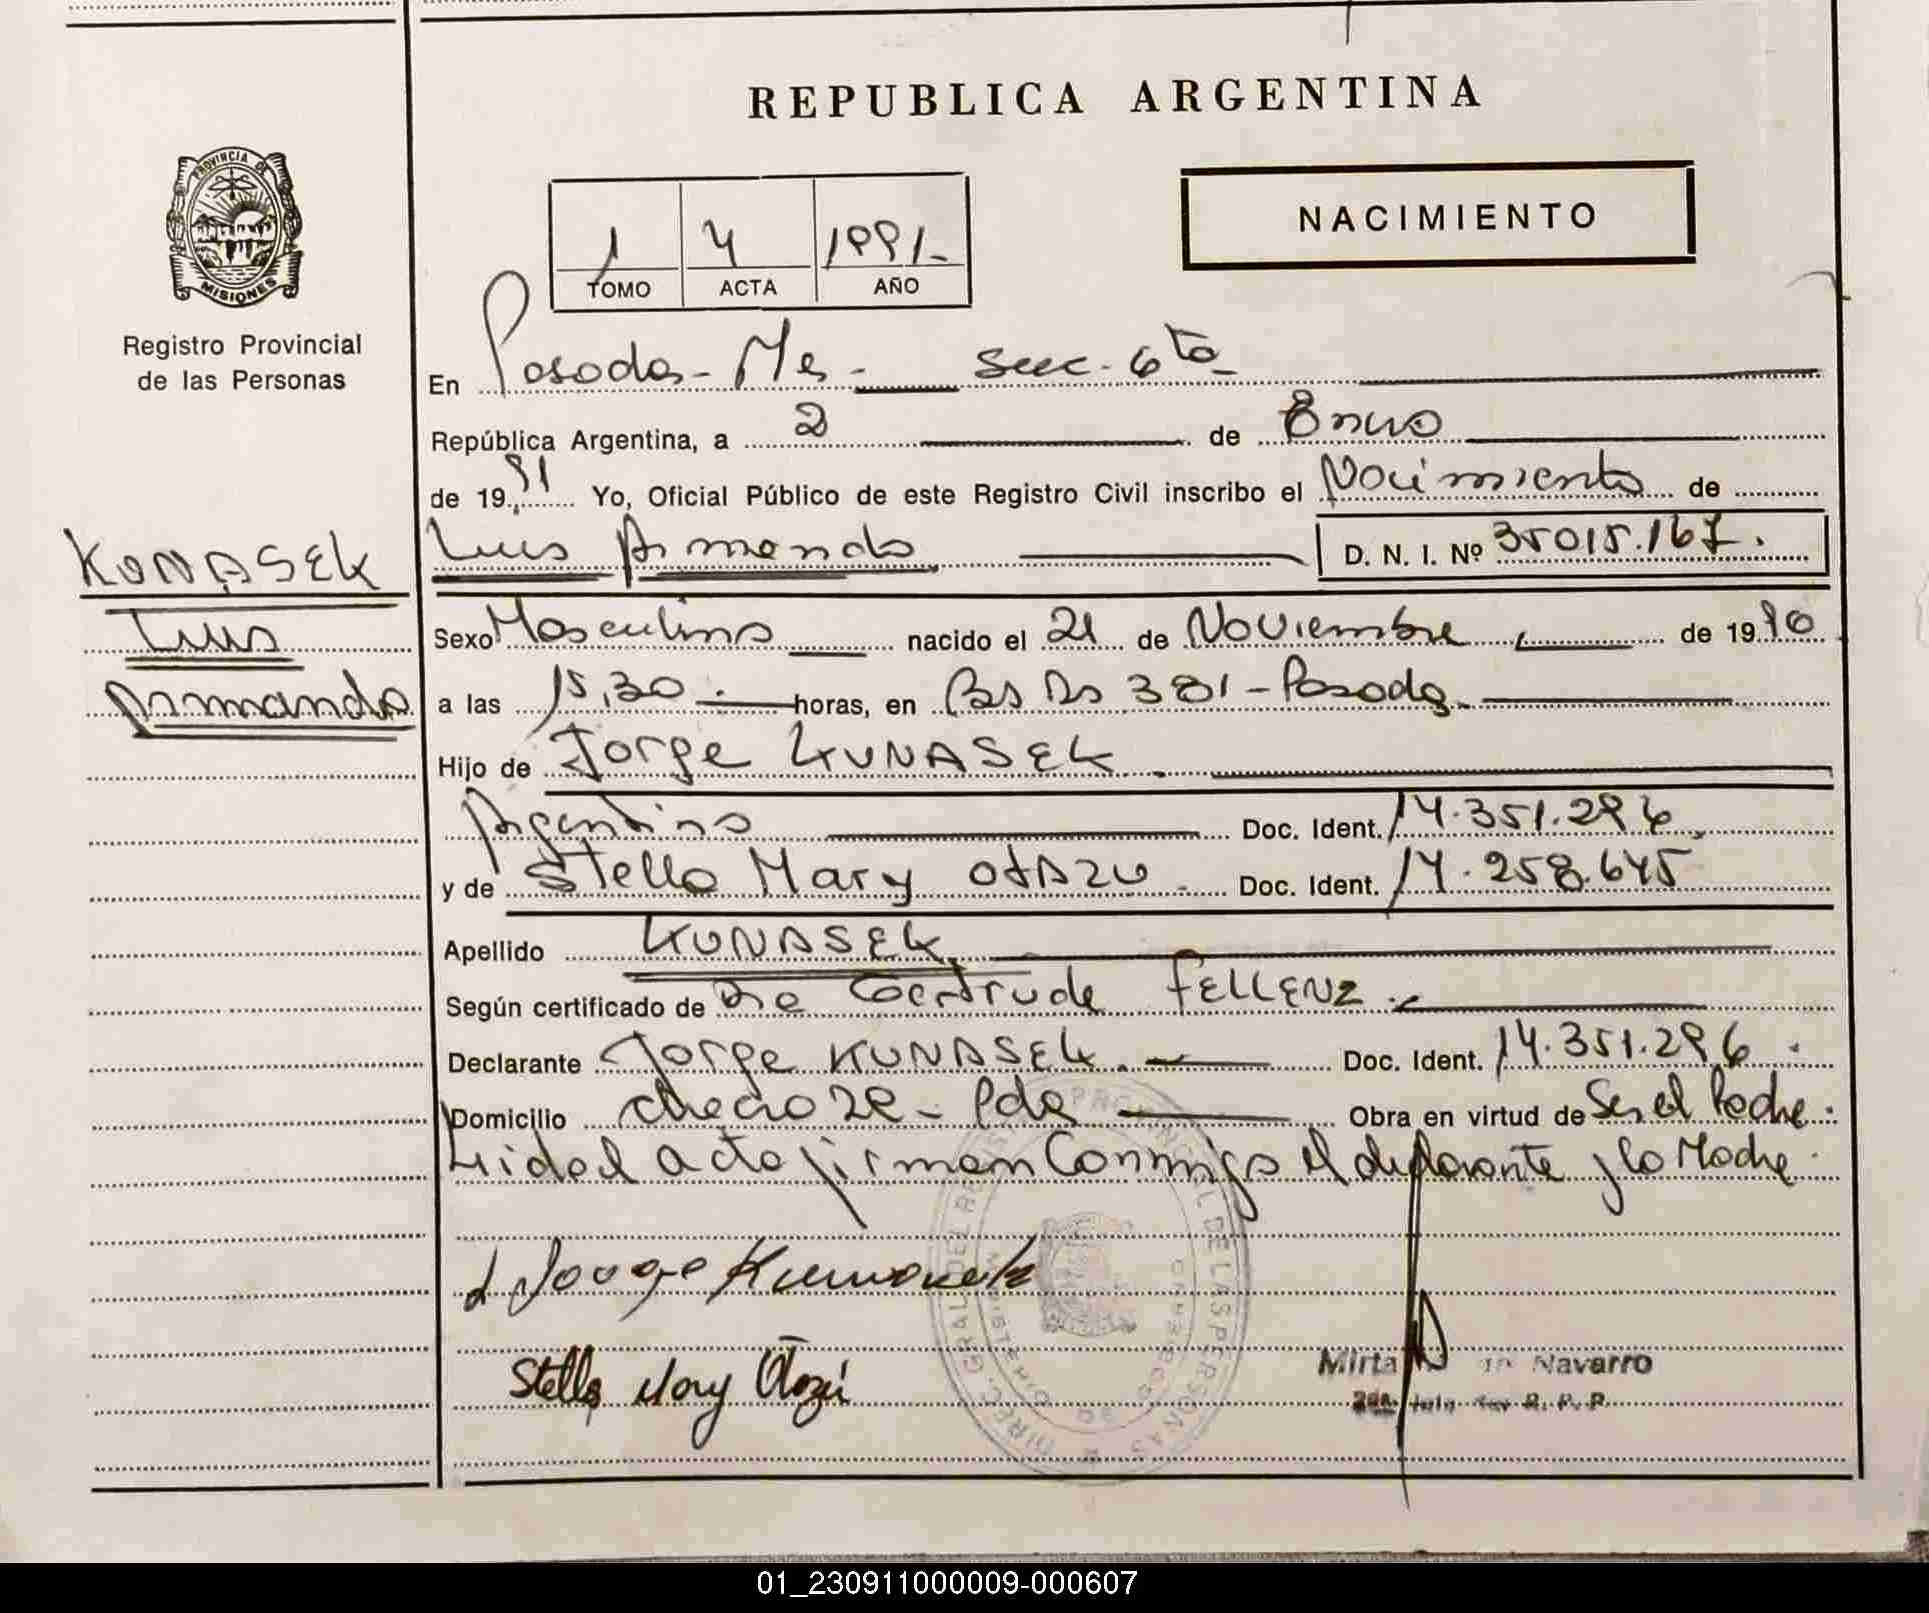 REPUBLICA ARGENTINA
PROVINCIA DE
MISIONES
Registro Provincial
de las Personas
NACIMIENTO
1 4 1991-
TOMO ACTA AÑO
En Posadas - Ms - Secc. 6ta
República Argentina, a 2 de Enero
de 1991 Yo, Oficial Público de este Registro Civil inscribo el Nacimiento de
KUNASEK
Luis
Armando
Luis Armando D. N. I. Nº 35015.167.
Sexo Masculino nacido el 21 de Noviembre de 1990
a las 15,30 horas, en Bs As 381 - Posadas
Hijo de Jorge KUNASEK
Argentino Doc. Ident. 14.351.296
y de Stella Mary OTAZU Doc. Ident. 14.258.645
Apellido KUNASEK
Según certificado de Dra Gertrude FELLENZ
Declarante Jorge KUNASEK Doc. Ident. 14.351.296
Domicilio Chaco 28 - Pdas Obra en virtud de Ser el Padre.
Leida el acta firman Conmigo el declarante y la Madre
Jorge Kunasek
Stella Mary Otazú
Mirta Navarro
R. P. P.
DIREC. GRAL. DEL REGISTRO PROVINCIAL DE LAS PERSONAS
01_230911000009-000607